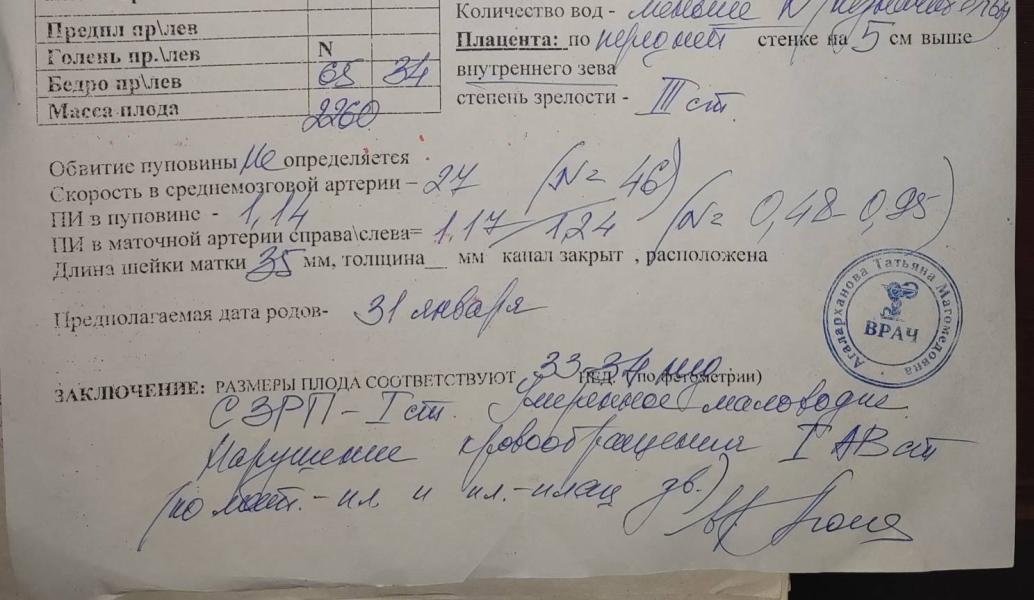 Предпл пр\лев
Голень пр.\лев N
Бедро пр\лев 65 34
Масса плода 2260
Количество вод - меньше N
Плацента: по передней стенке на 5 см выше
внутреннего зева
степень зрелости - III ст.
Обвитие пуповины не определяется
Скорость в среднемозговой артерии – 27 (N= 46)
ПИ в пуповине - 1,14
ПИ в маточной артерии справа\слева= 1,17 / 1,24 (N= 0,48-0,95)
Длина шейки матки 35 мм, толщина__ мм канал закрыт , расположена
Предполагаемая дата родов- 31 января
ЗАКЛЮЧЕНИЕ: РАЗМЕРЫ ПЛОДА СООТВЕТСТВУЮТ 33-34 НЕД. (по фетометрии)
СЗРП - I ст. Умеренное маловодие.
Нарушение кровообращения I АВ ст
(по мат.-пл и пл.-плац зв.)
Агаларханова Татьяна Магомедовна
ВРАЧ